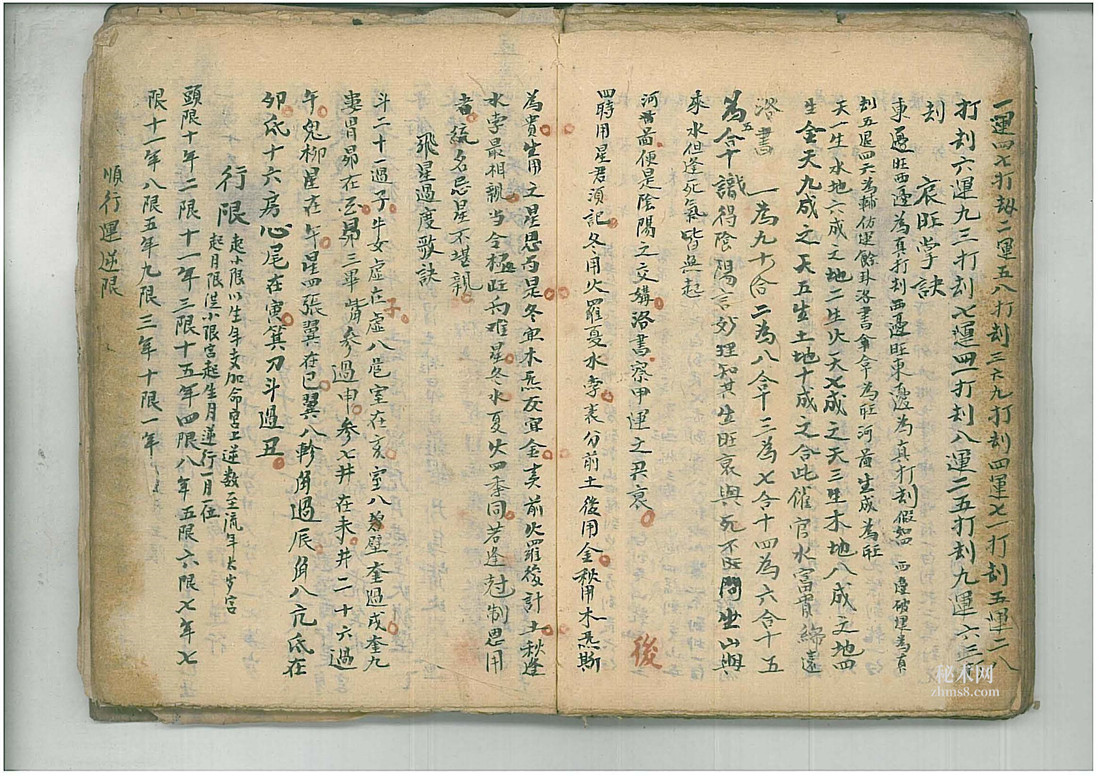 一運四七打劫二運五八打刦三六九打刦四運七一打刦五運二八
打刦六運九三打刦七運四一打刦八運二五打刦九運六三打
刦 衰旺掌訣
東邊旺西邊為真打刦西邊旺東邊為真打刦假如西邊破運為有
刦五退四六為輔仿運餘殊洛書合今為旺河啚生成為旺
天一生水地六成之地二生火天七成之天三生木地八成之地四
生金天九成之天五生土地十成之合此催官水富貴綿遠
洛書 一為九十合二為八合十三為七合十四為六合十五
為五合十識得陰陽玄妙理知其生旺衰與死不旺問坐山與
來水但逢死氣皆無起
河啚圖便是陰陽之交媾洛書察甲運之興衰
四時用星君須記冬用火羅夏水孛裏分前土後用金秋用木炁斯
後
為貴生用之星恩与是冬宜木炁友宜金春前火羅後計土秋逢
水孛最相親当令極旺為难星冬水夏火四季同若逢尅制恩用
者統名忌星不堪親
飛星過度歌訣
斗二十一過子牛女虛在子虛八危室在亥室八碧壁奎過戌奎九
婁胃昴在酉昴三畢觜參過申參七井在未井二十六過
午鬼柳星在午星四張翼在巳翼八軫角過辰角八亢氐在
卯氐十六房心尾在寅箕刀斗過丑
行限 起小限以生年支加命宮上逆数至流年太岁宮
起月限從小限宮起生月逆行一月一位
頭限十年二限十一年三限十五年四限八年五限六限七年七
限十一年八限五年九限三年十限一年
順行運逆限
秘术网
zhms8.com